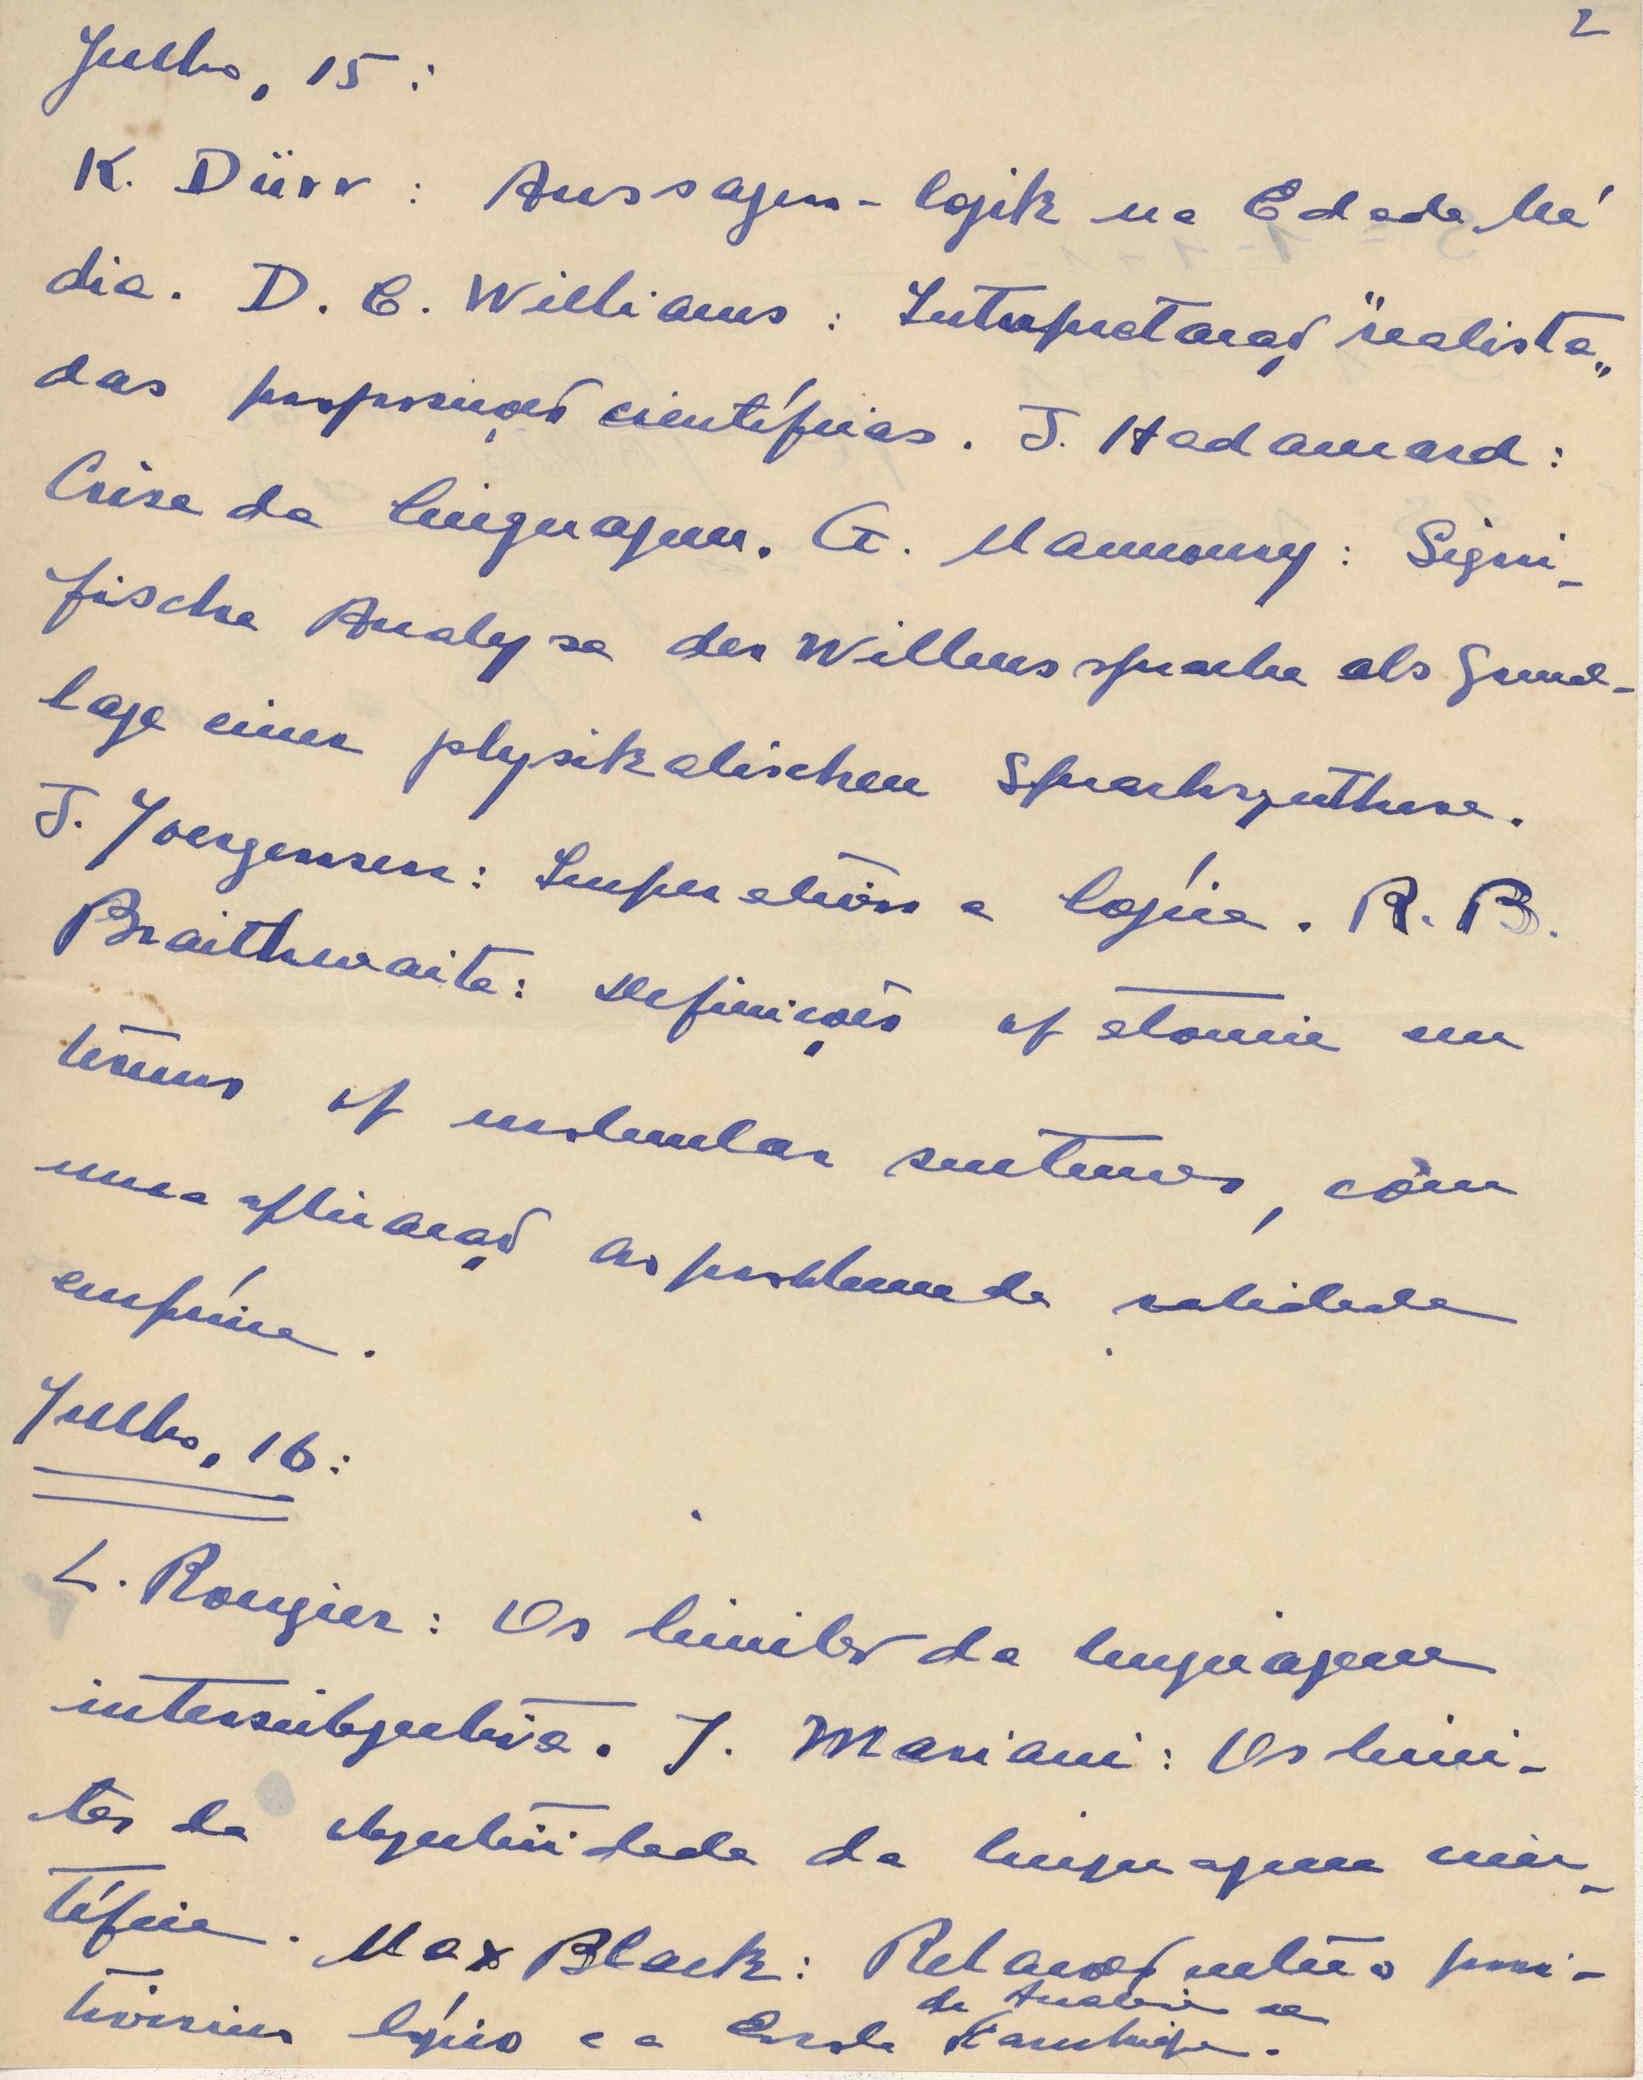 2
Julho, 15:
K. Dürr: Aussagen-logik na Edade Mé
dia. D. C. Williams: Interpretação "realista"
das proposições científicas. J. Hadamard:
Crise da linguagem. G. Mannoury: Signi-
fische Analyse der Willenssprache als Grund-
lage einer physikalischen Sprachsynthese.
J. Joergensen: Imperativos e lógica. R. B.
Braithwaite: Definições of atomic em
terms of molecular sentences, com
uma aplicação ao problema da validade
empírica.
Julho, 16:
L. Rougier: Os limites da linguagem
intersubjectiva. J. Mariani: Os limi-
tes da objectividade da linguagem cien-
tífica. Max Black: Relações entre o posi-
tivismo lógico e a Escola de Analise de
Cambridge.